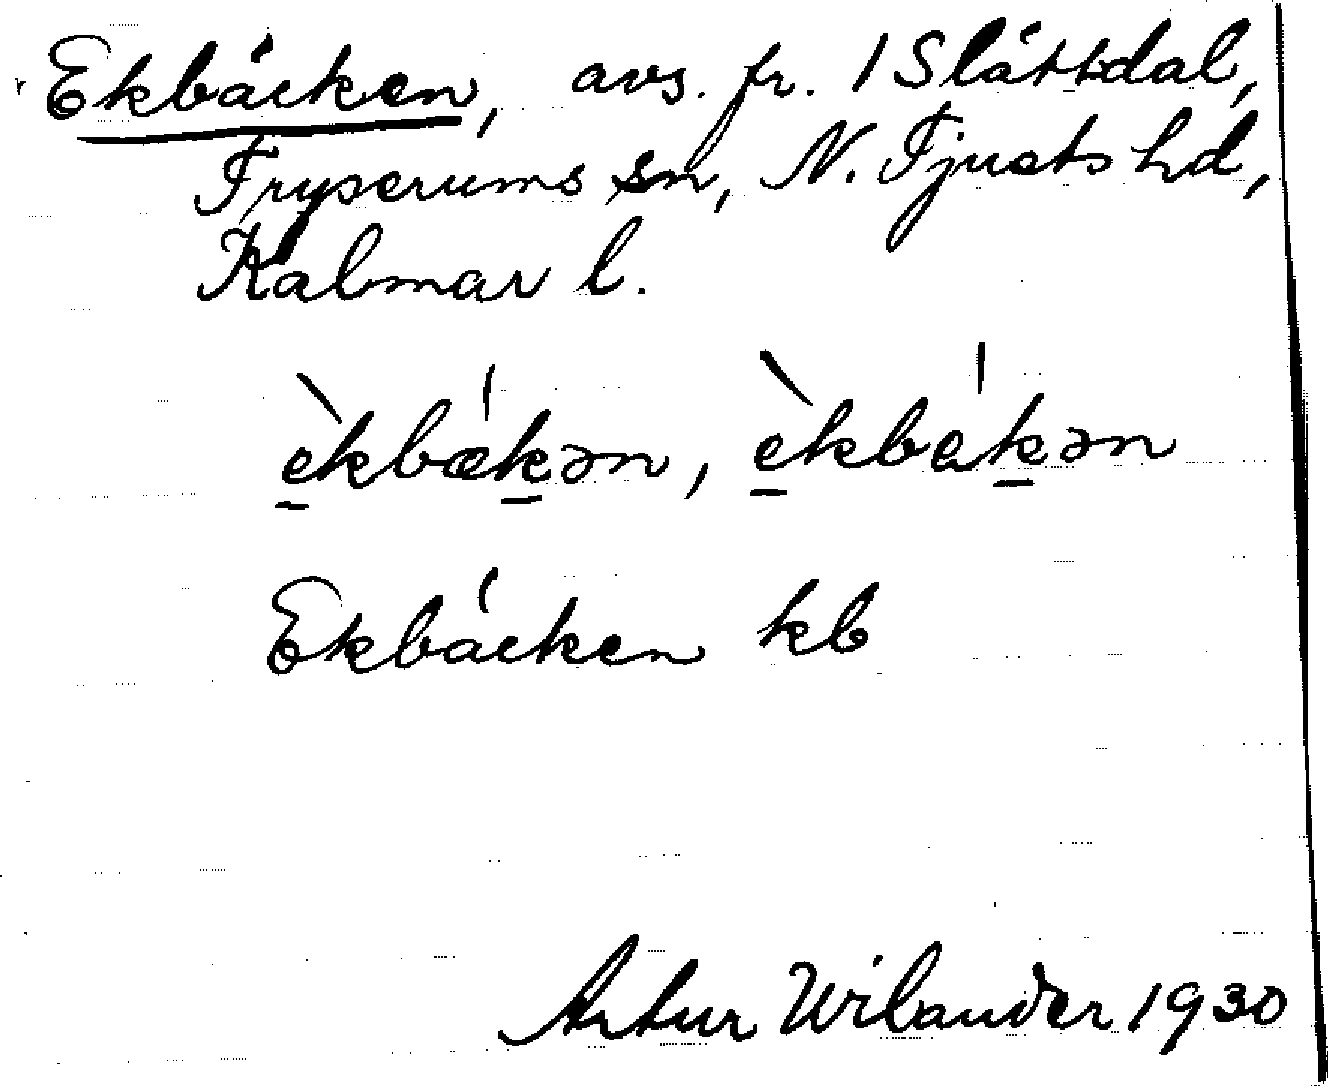 Ekbäcken, avs. fr. 1 Slättdal,
Tryserums sn, N. Tjusts hd,
Kalmar l.
èkbækən, èkbakən
Ekbäcken kb
Artur Wilander 1930